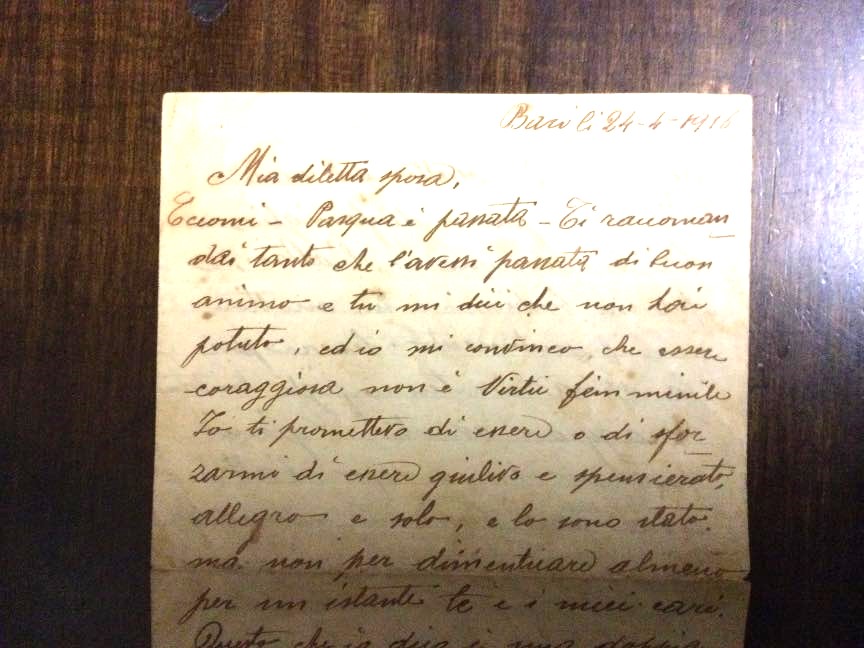 Bari li 24-4-1916
Mia diletta sposa,
Eccomi - Pasqua è passata - Ti raccoman
dai tanto che l'avessi passata di buon
animo e tu mi dici che non hai
potuto, ed io mi convinco che essere
coraggiosa non è Virtù femminile
Io ti promettevo di essere o di sfor
zarmi di essere giulivo e spensierato,
allegro e solo, e lo sono stato.
ma non per dimenticare almeno
per un istante te e i miei cari.
Questo che io dico è una doppia